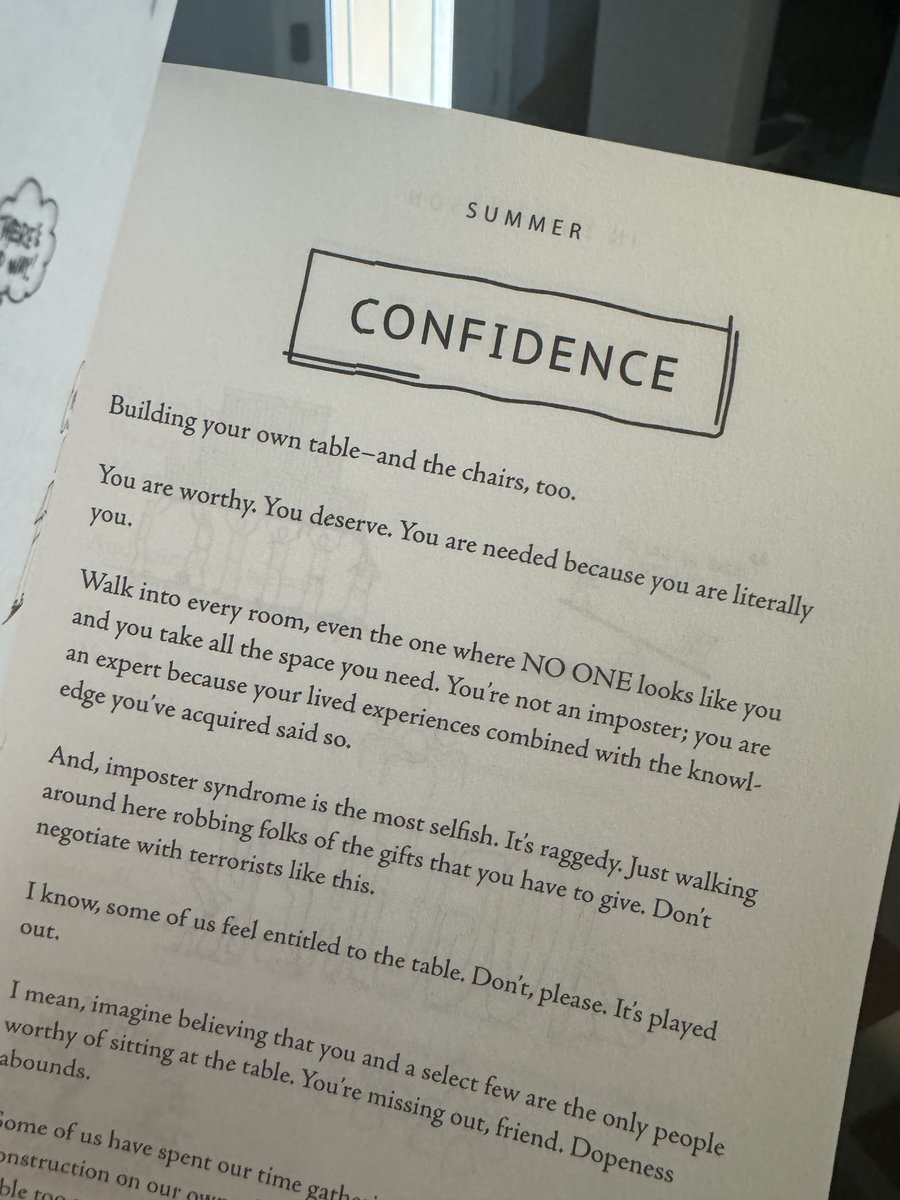 THERE'S
WAY!
SUMMER
CONFIDENCE
Building your own table–and the chairs, too.
You are worthy. You deserve. You are needed because you are literally
you.
Walk into every room, even the one where NO ONE looks like you
and you take all the space you need. You're not an imposter; you are
an expert because your lived experiences combined with the knowl-
edge you've acquired said so.
And, imposter syndrome is the most selfish. It's raggedy. Just walking
around here robbing folks of the gifts that you have to give. Don't
negotiate with terrorists like this.
I know, some of us feel entitled to the table. Don't, please. It's played
out.
I mean, imagine believing that you and a select few are the only people
worthy of sitting at the table. You're missing out, friend. Dopeness
abounds.
Some of us have spent our time
onstruction on our own
too